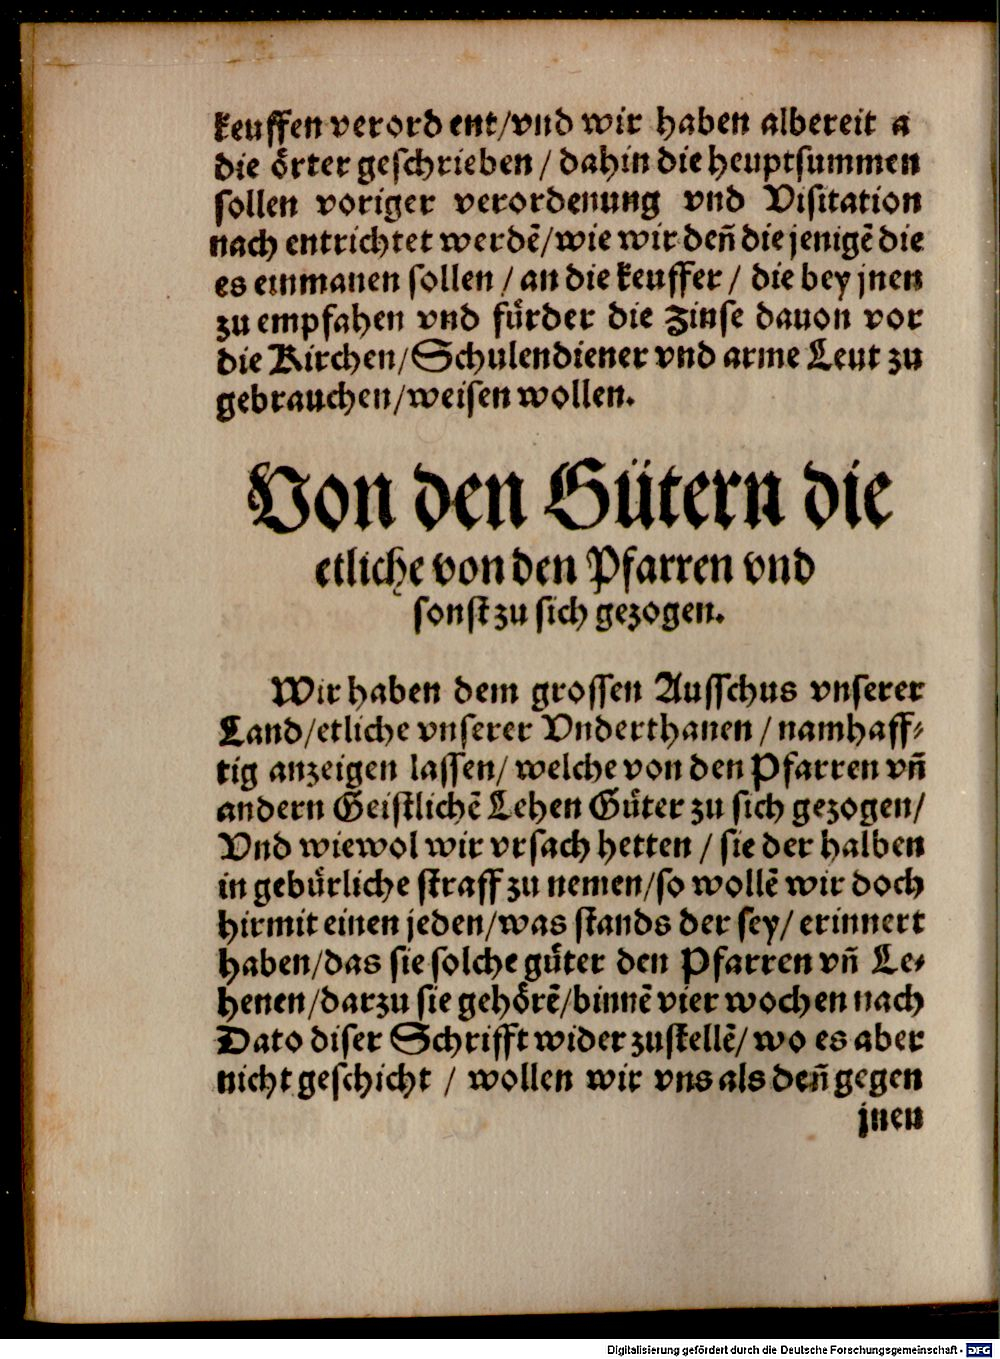 keuffen verordent/vnd wir haben albereit a
die örter geschrieben / dahin die heuptsummen
sollen voriger verordenung vnd Visitation
nach entrichtet werdẽ/wie wir deñ die jenigẽ die
es einmanen sollen / an die keuffer / die bey jnen
zu empfahen vnd fürder die Zinse dauon vor
die Kirchen/Schulendiener vnd arme Leut zu
gebrauchen/weisen wollen.
Von den Gütern die
etliche von den Pfarren vnd
sonst zu sich gezogen.
Wir haben dem grossen Ausschus vnserer
Land/etliche vnserer Vnderthanen / namhaff⸗
tig anzeigen lassen/ welche von den Pfarren vñ
andern Geistlichẽ Lehen Güter zu sich gezogen/
Vnd wiewol wir vrsach hetten / sie der halben
in gebürliche straff zu nemen/so wollẽ wir doch
hirmit einen jeden/was stands der sey/ erinnert
haben/das sie solche güter den Pfarren vñ Le⸗
henen/darzu sie gehörẽ/binnẽ vier wochen nach
Dato diser Schrifft wider zustellẽ/ wo es aber
nicht geschicht / wollen wir vns als deñ gegen
jnen
Digitalisierung gefördert durch die Deutsche Forschungsgemeinschaft - DFG